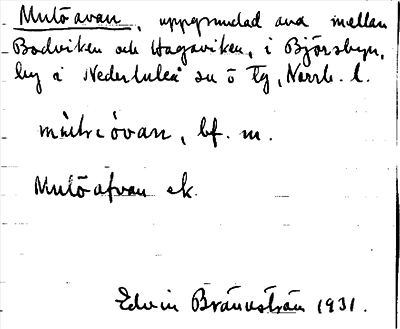 Mulöavan, uppgrundad ava mellan
Bodviken och Hagaviken, i Björsbyn,
by i Nederluleå sn o tg, Norrb. l.
bf. m.
Mulöafvan ek.
Edvin Brännström 1931.